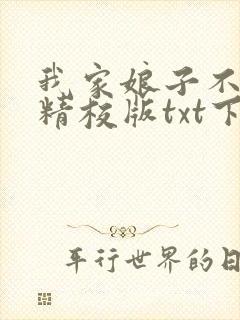 我家娘子不
精校版txt下
平行世界的日